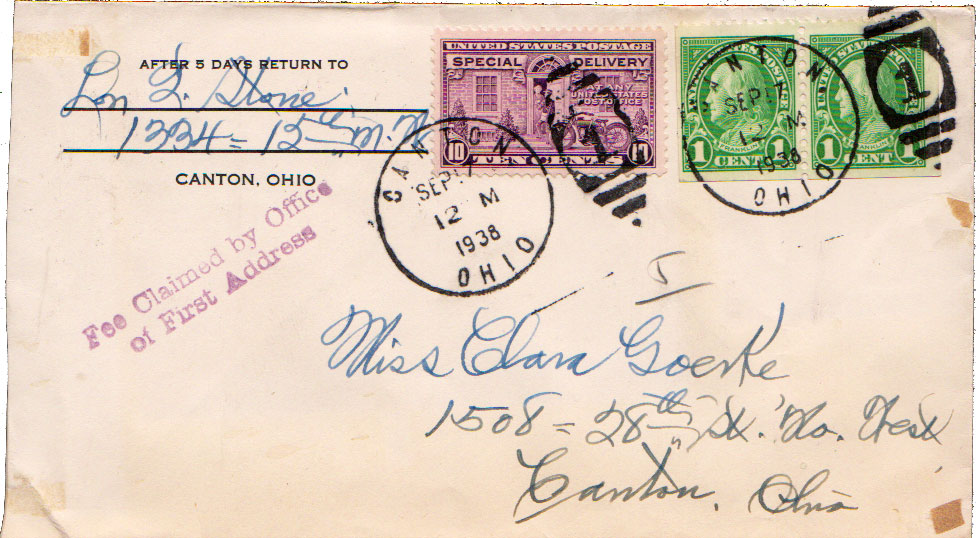 AFTER 5 DAYS RETURN TO
Lon L. Stone.
1334 = 15th N.W.
CANTON, OHIO
Fee Claimed by Office
of First Address
UNITED STATES POSTAGE
SPECIAL DELIVERY
AT ANY
UNITED STATES
POST OFFICE
10 TEN CENTS 10
UNITED STATES POSTAGE
FRANKLIN
1 CENT 1
UNITED STATES POSTAGE
FRANKLIN
1 CENT 1
CANTON
SEP 17
12 M
1938
OHIO
CANTON
SEP 17
12 M
1938
OHIO
1
Miss Clara Goerke
1508 = 28th St. No. West
Canton, Ohio